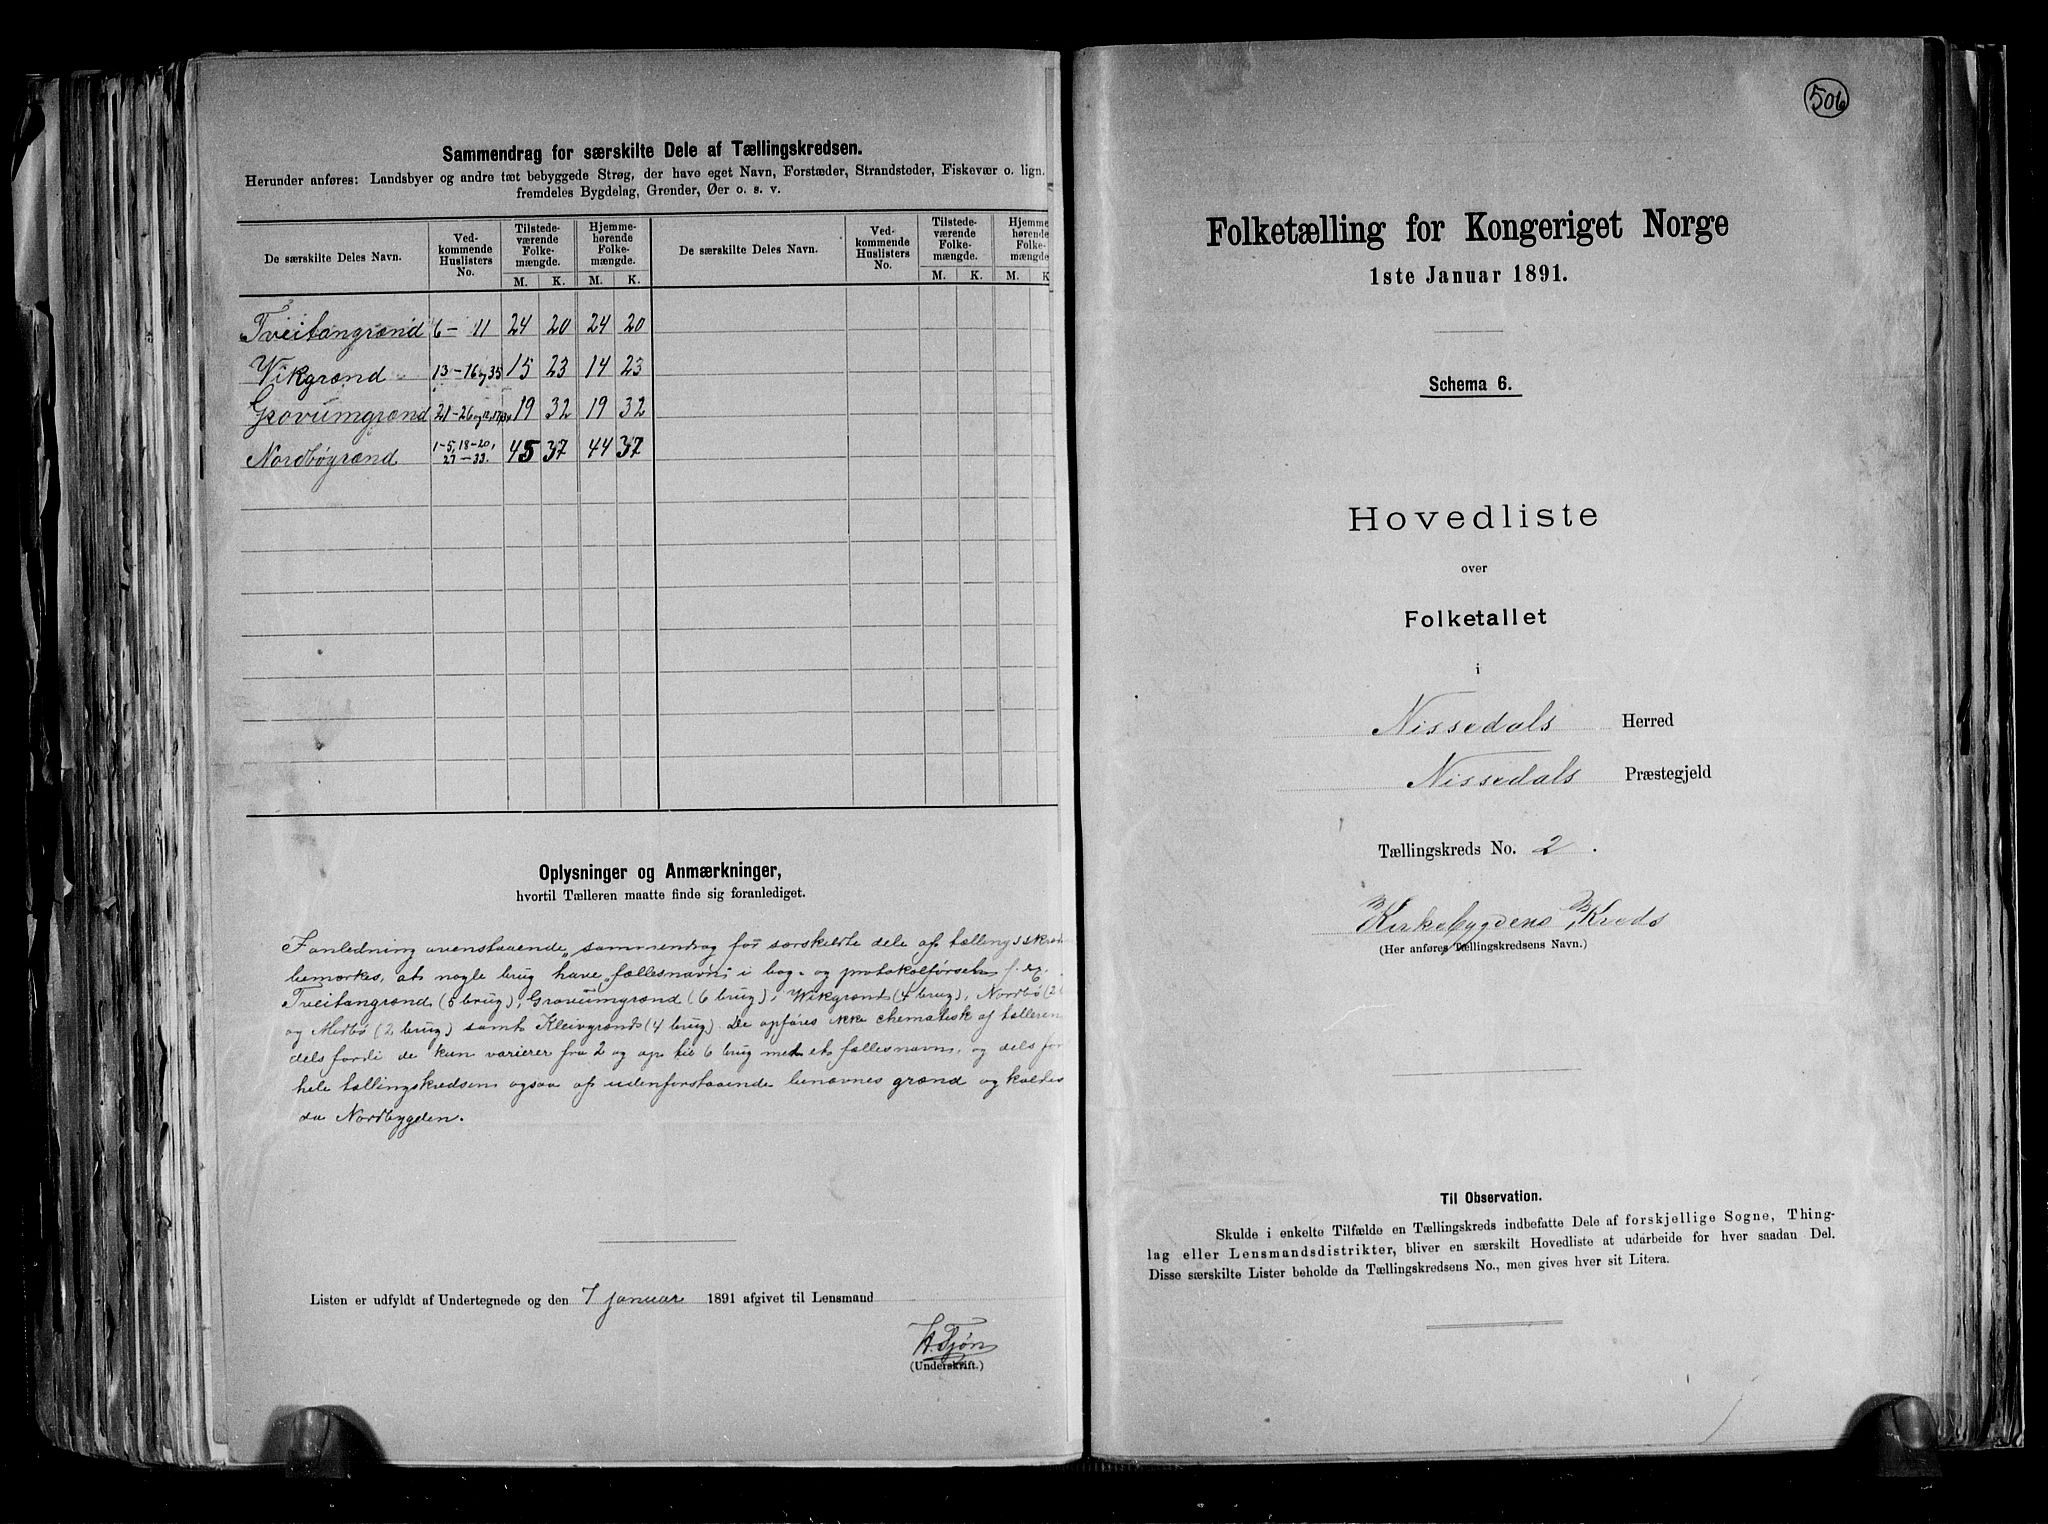 Sammendrag for særskilte Dele af Tællingskredsen.
Herunder anføres: Landsbyer og andre tæt bebyggede Strøg, der have eget Navn, Forstæder, Strandsteder, Fiskevær o. lign.
fremdeles Bygdelag, Grender, Øer o. s. v.
De særskilte Deles Navn. Ved-kommende Huslisters No. Tilstede-værende Folke-mængde. Hjemme-hørende Folke-mængde. De særskilte Deles Navn. Ved-kommende Huslisters No. Tilstede-værende Folke-mængde. Hjemme-hørende Folke-mængde.
M. K. M. K. M. K. M. K
Tveitangrænd 6 – 11 24 20 24 20
Vikgrænd 13 – 16 og 35 15 23 14 23
Grovumgrænd 21 – 26 19 32 19 32
Nordbøgrænd 1-5, 18-20, 27-33. 45 37 44 37
Oplysninger og Anmærkninger,
hvortil Tælleren maatte finde sig foranlediget.
I anledning ovenstaaende „sammendrag for særskildte dele af tællingsskred
bemærkes, at nogle brug have fællesnavn i bog- og protokolførsel
Tveitangrænd (5 brug), Grovumgrænd (6 brug), Wikgrænd (4 brug), Nordbø (2
og Medbø (2 brug) samt Kleivgrænd (4 brug). De opføres ikke chematisk af tælleren
dels fordi de kun varierer fra 2 og op til 6 brug med et fællesnavn, og dels for
hele tællingskredsen ogsaa af udenforstaaende benævnes grænd og kaldes
da Nordbygden.
Listen er udfyldt af Undertegnede og den 7 januar 1891 afgivet til Lensmand
Tjøn
(Underskrift.)
506
Folketælling for Kongeriget Norge
1ste Januar 1891.
Schema 6.
Hovedliste
over
Folketallet
i
Nissedals Herred
Nissedals Præstegjeld
Tællingskreds No. 2.
Kirkebygdens Kreds
(Her anføres Tællingskredsens Navn.)
Til Observation.
Skulde i enkelte Tilfælde en Tællingskreds indbefatte Dele af forskjellige Sogne, Thing-
lag eller Lensmandsdistrikter, bliver en særskilt Hovedliste at udarbeide for hver saadan Del.
Disse særskilte Lister beholde da Tællingskredsens No., men gives hver sit Litera.